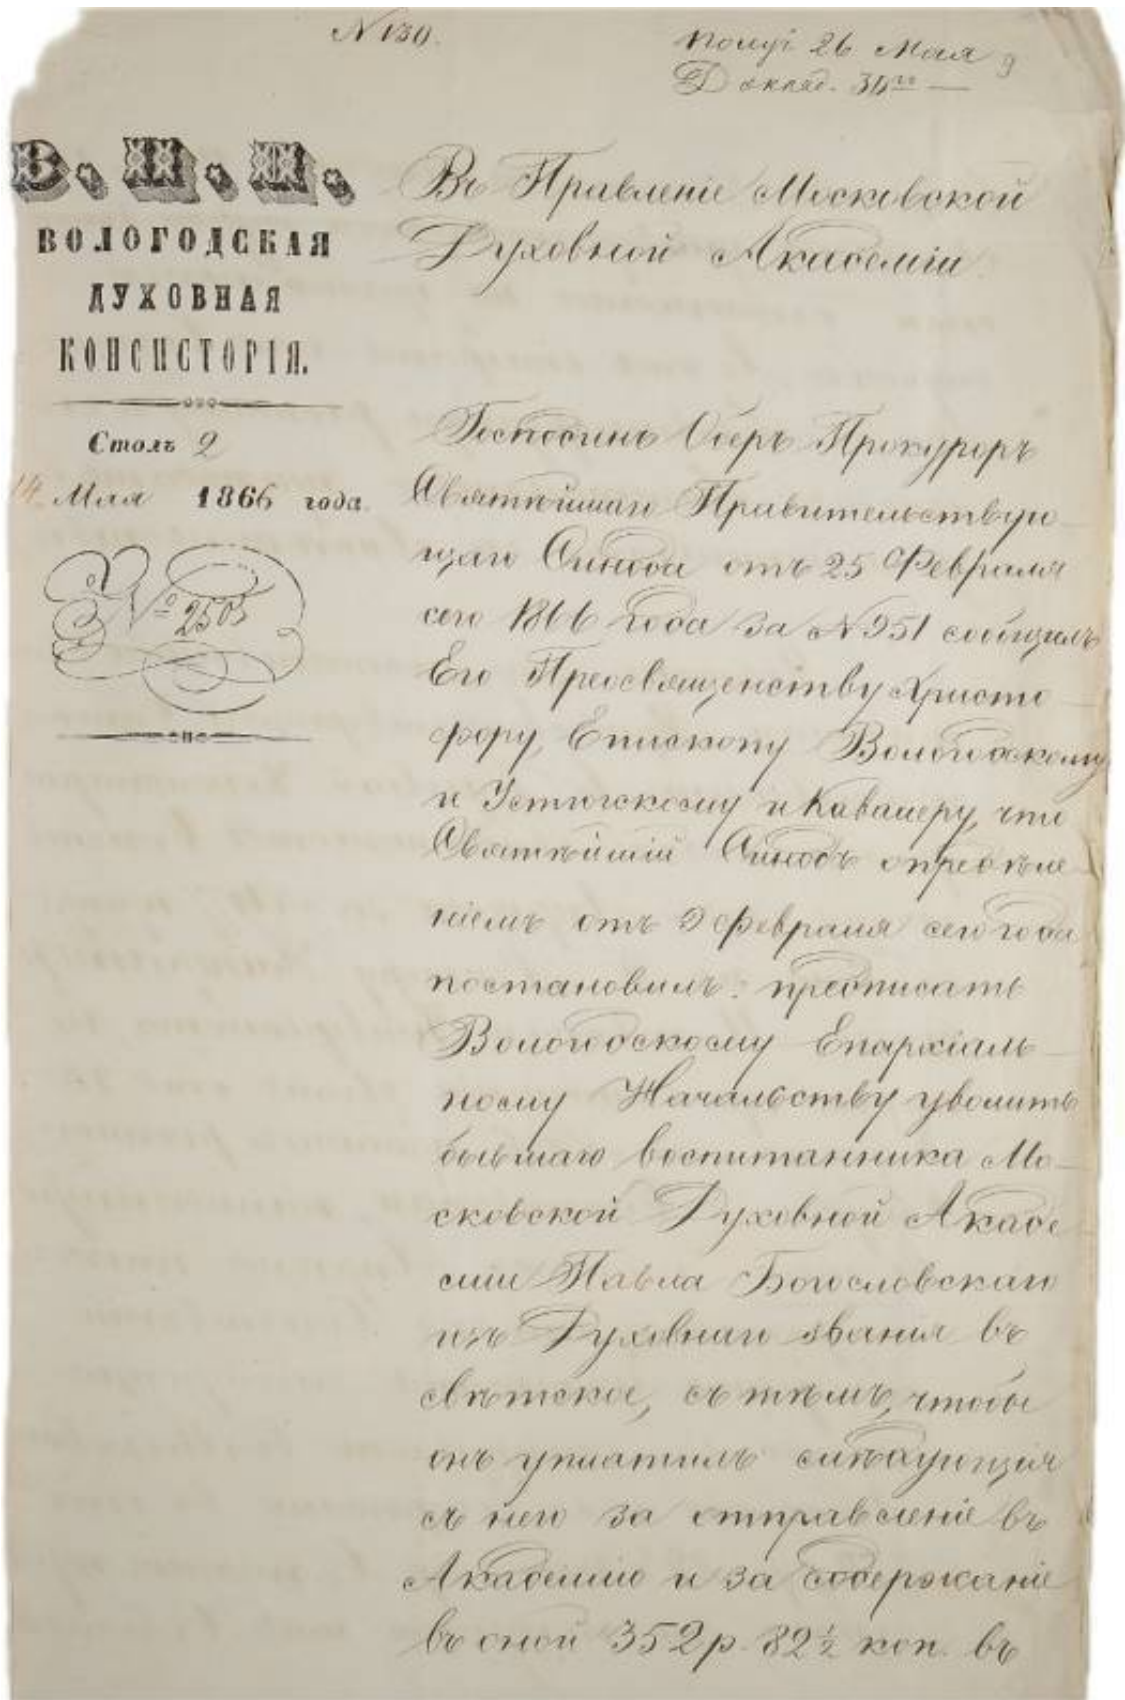 N 130.
Получ 26 Мая 9
Доклад. 30го —
В. П. И.
ВОЛОГОДСКАЯ
ДУХОВНАЯ
КОНСИСТОРІЯ.
Столъ 2
14 Мая 1866 года.
№ 2505
Въ Правленіе Московской
Духовной Академіи.
Господинъ Оберъ Прокуроръ
Святѣйшаго Правительствую-
щаго Синода отъ 25 Февраля
сего 1866 года за N 951 сообщилъ
Его Преосвященству Христо-
фору, Епископу Вологодскому
и Устюжскому и Кавалеру, что
Святѣйшій Синодъ опредѣле-
ніемъ отъ 9 февраля сего года
постановилъ: предписать
Вологодскому Епархіаль-
ному Начальству уволить
бывшаго воспитанника Мо-
сковской Духовной Акаде-
міи Павла Богословскаго
изъ Духовнаго званія въ
свѣтское, съ тѣмъ, чтобы
онъ уплатилъ слѣдующія
съ него за отправленіе въ
Академію и за содержаніе
въ оной 352 р. 82 ½ коп. въ